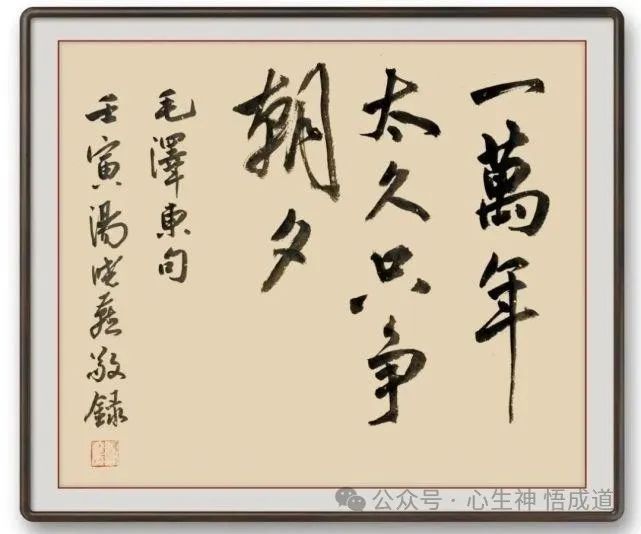 一萬年
太久只争
朝夕
毛澤東句
壬寅湯曉燕敬錄
公众号·心生神 悟成道